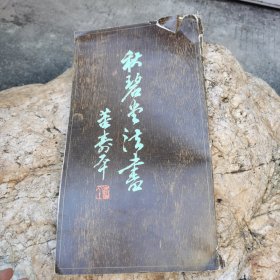 秋碧堂法書
董壽平